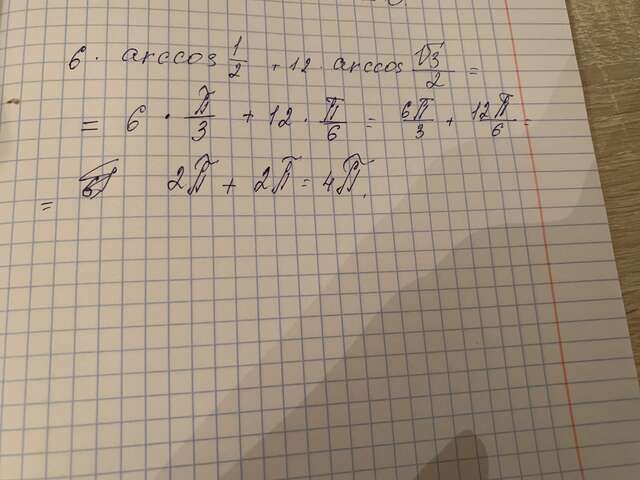 6 · arccos 1/2 + 12 · arccos √3/2 =
= 6 · π/3 + 12 · π/6 = 6π/3 + 12π/6 =
= 2π + 2π = 4π.